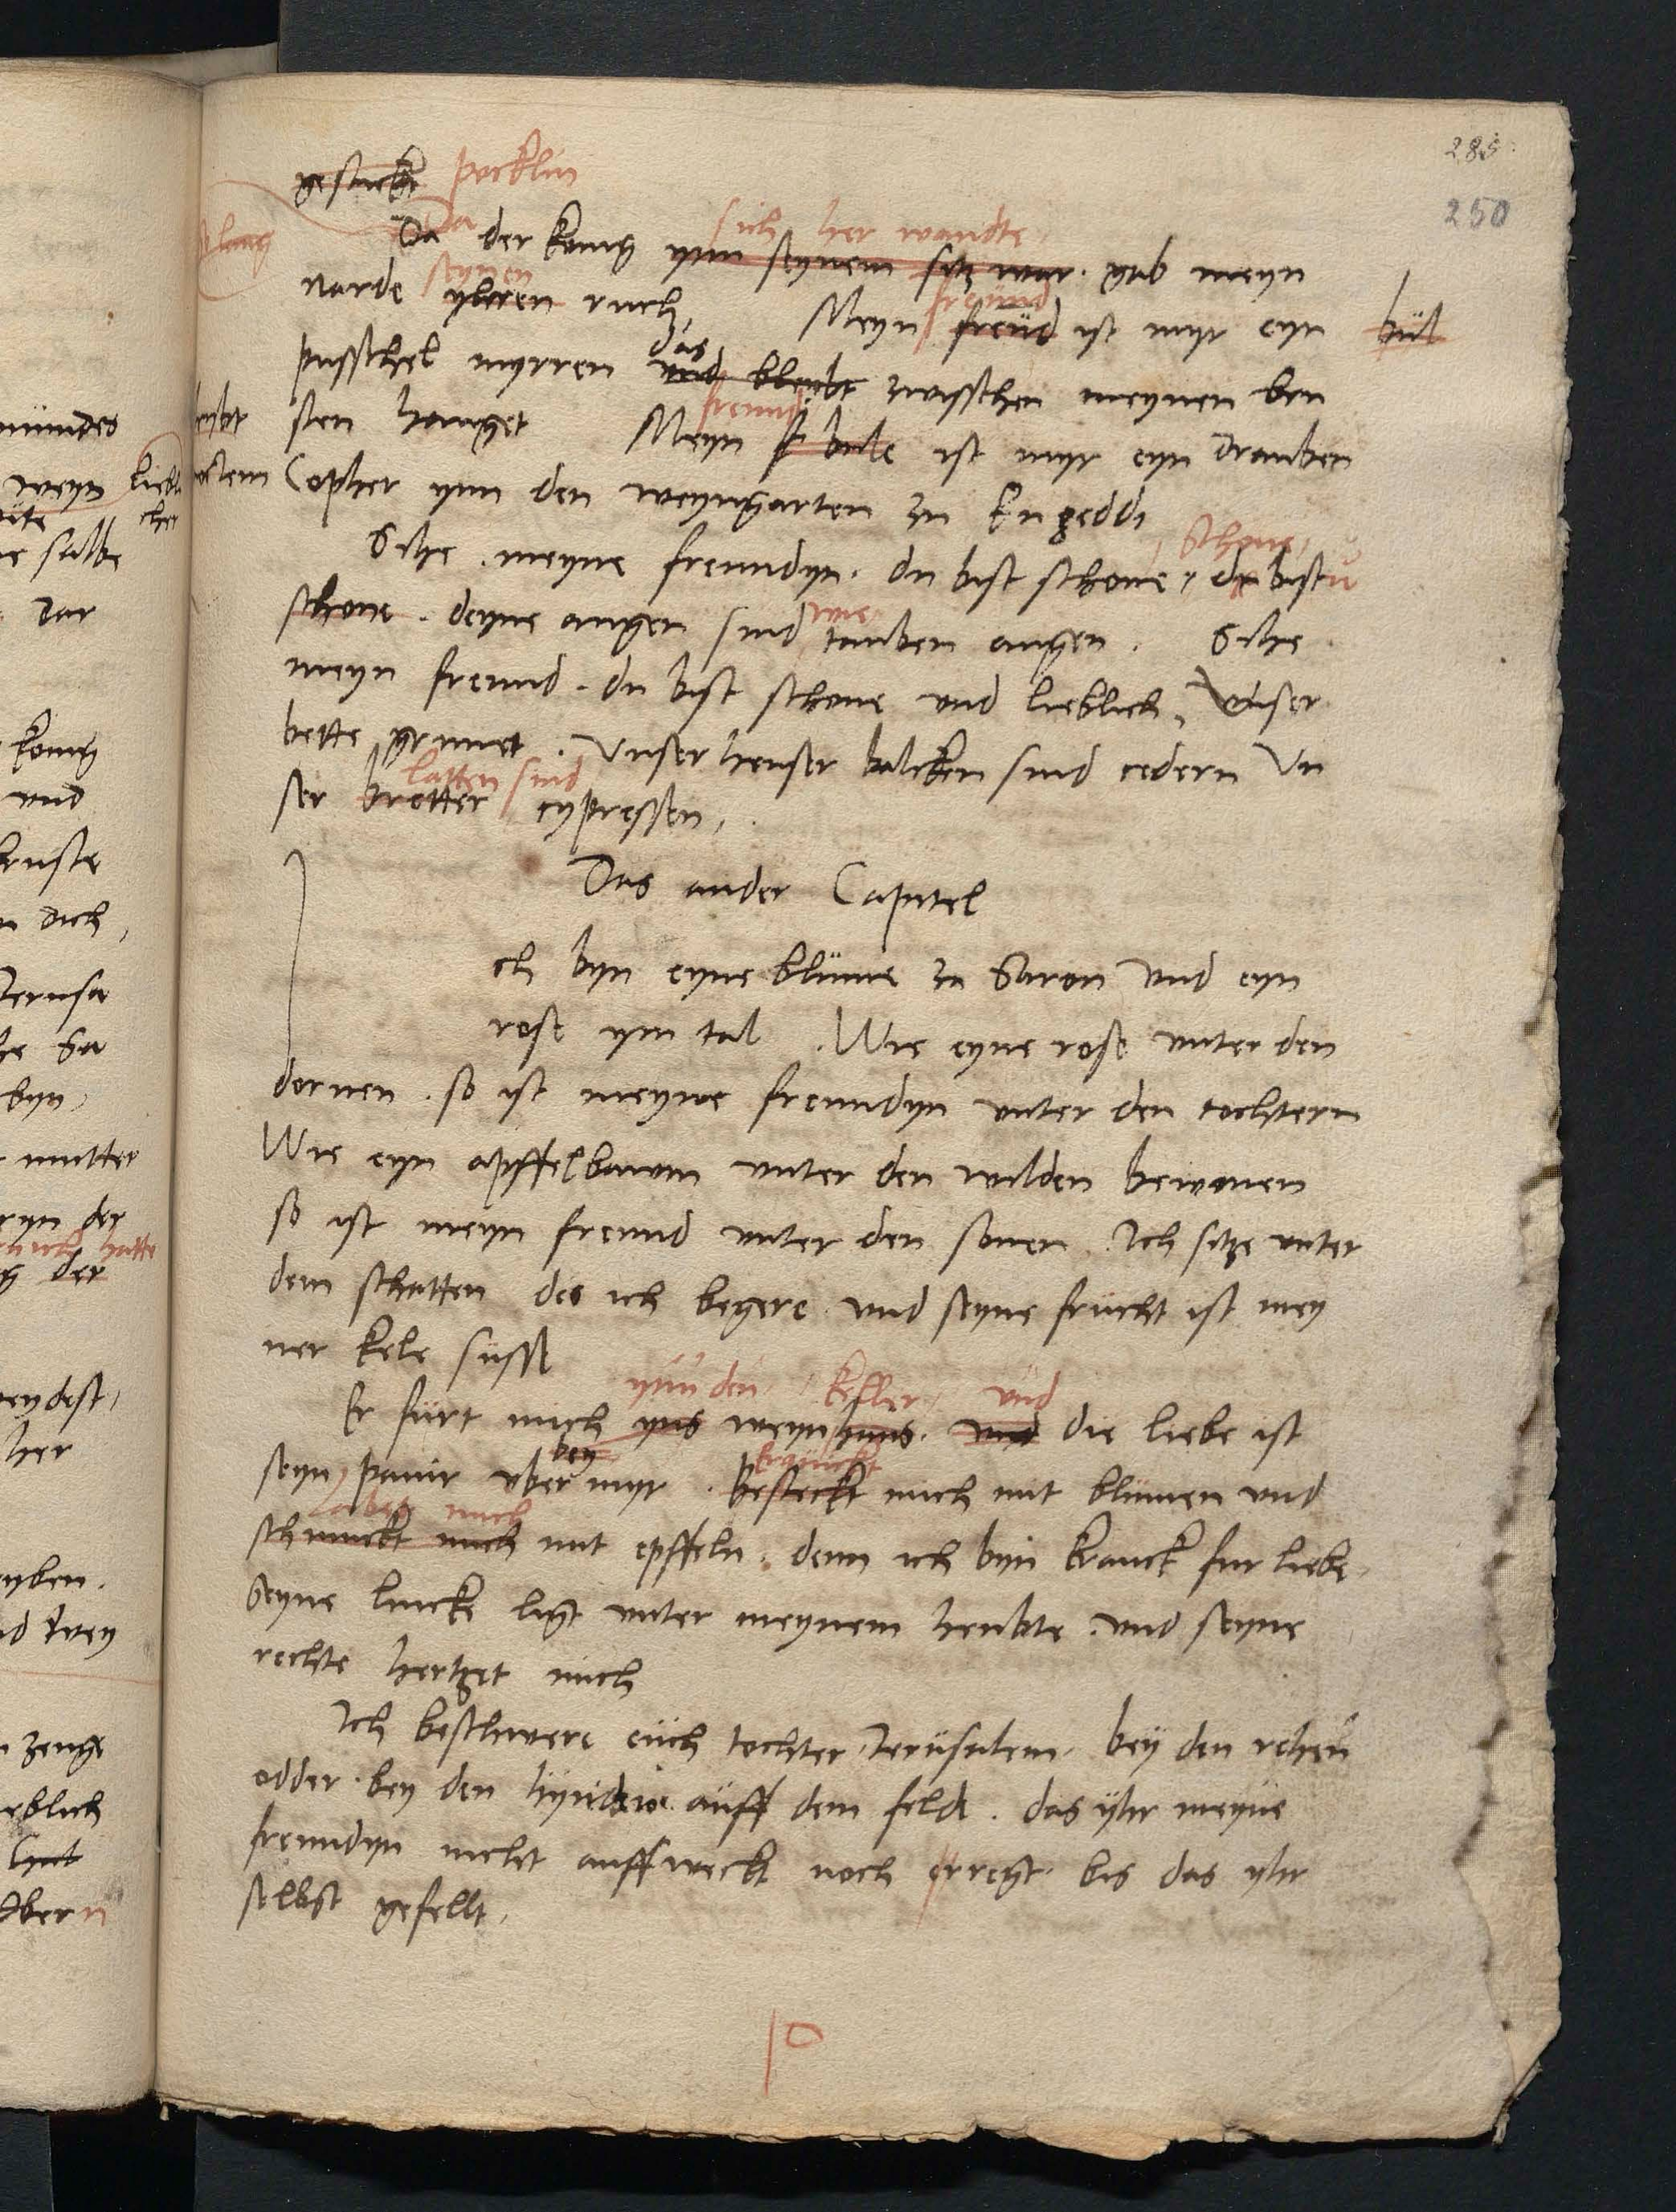 285
250
gestucke pocklin
Da Da der konig ynn seynem sitz war sich her wandte. gab meyn
narde yhren seynen ruch, Meyn freud freund ist myr eyn bül
pusschel myrren und bleybt das zwisschen meynen bru
sten hanget Meyn f bule freund ist myr eyn drauben
Copher ynn den weyngarten zu Engeddi
Sihe. meyne freundyn. du bist schone, schone, du bist
schone. deyne augen sind wie tauben augen. Sihe
meyn freund. du bist schone und lieblich, Unser
bette grunet. Unser heuser balcken sind cedern Un
ser bretter latten sind cypressen,
Das ander Capitel
Ich byn eyne blüme zu Saron und eyn
rose ym tal. Wie eyne rose unter den
dornen. so ist meyne freundyn unter den tochtern
Wie eyn apffelbawm unter den wilden bewmen
so ist meyn freund unter den sonen. Ich sitze unter
dem schatten des ich begere. und seyne frucht ist mey
ner kele süsse
Er fürt mich yns ynn den weynhaus keller. und und die liebe ist
seyn panir uber bey myr. Besteckt mich mit blümen und
schmuckt mich labet mich mit epffeln. denn ich byn kranck fur liebe.
Seyne lincke ligt unter meynem heubte. und seyne
rechte hertzet mich
Ich beschwere euch tochter Jerusalem. bey den rehen
odder bey den hynden auff dem felde. das yhr meyne
freundyn nicht auffweckt noch erregt. bis das yhr
selbst gefellt,